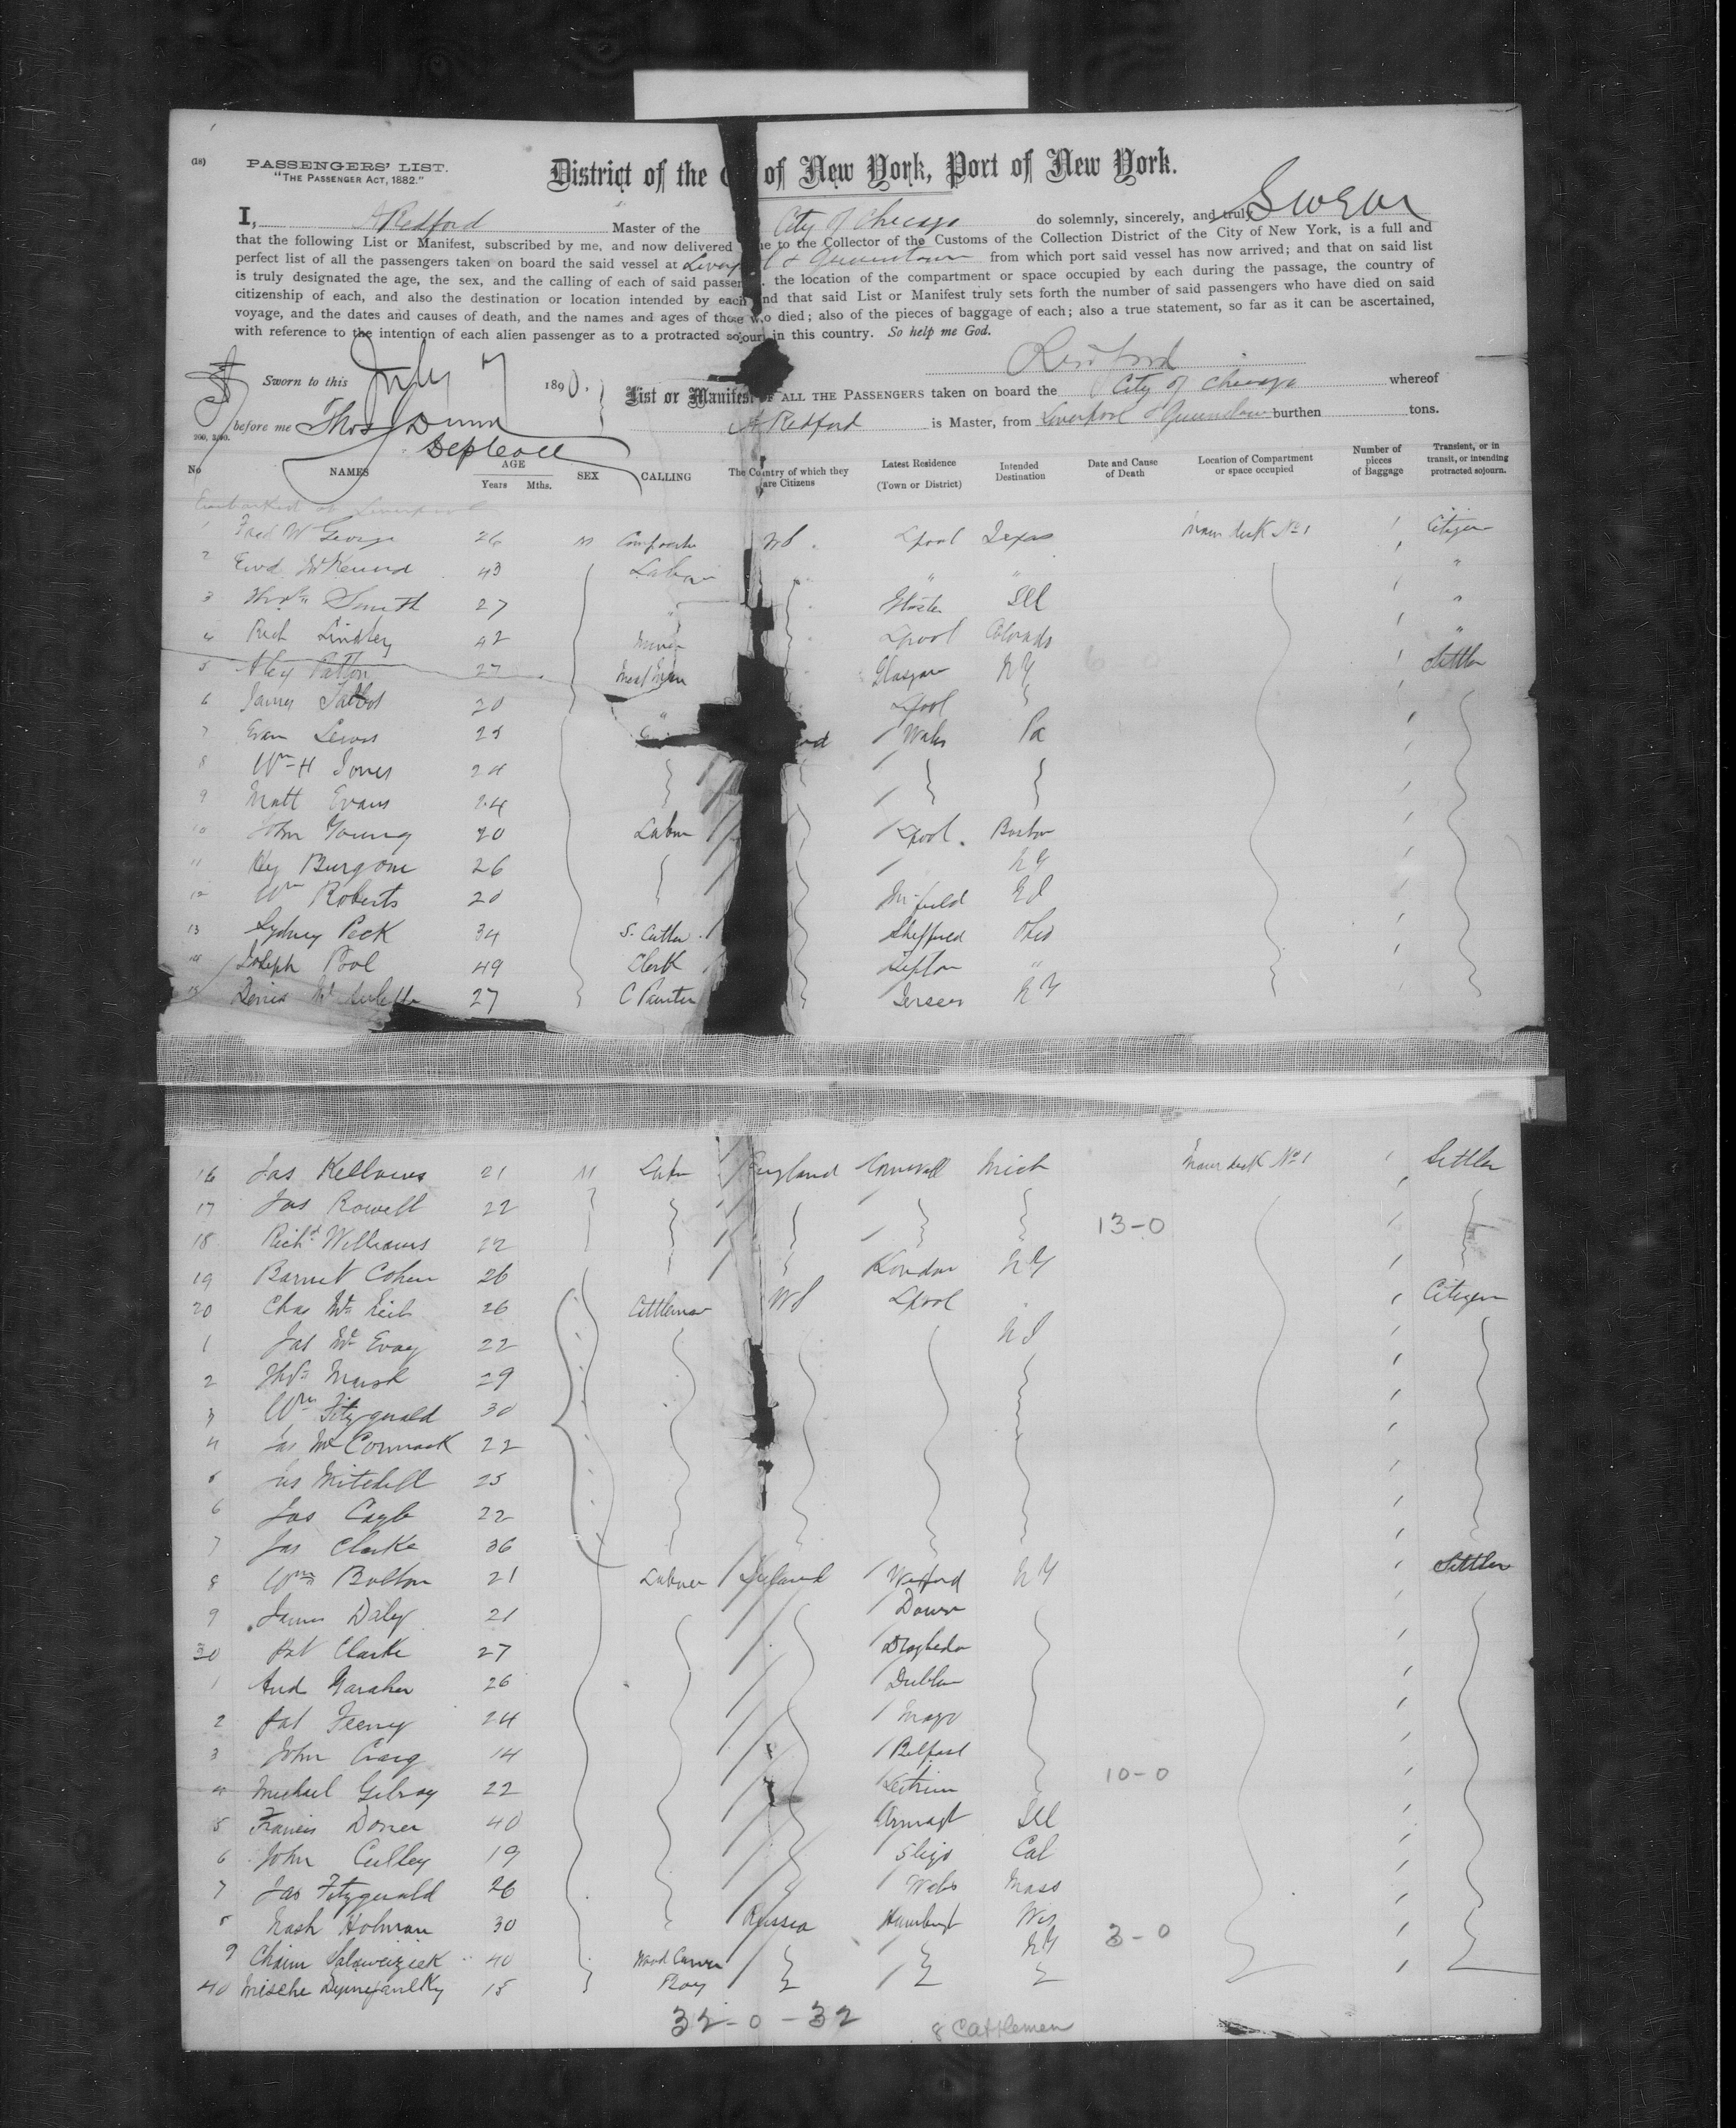 (18)
PASSENGERS' LIST.
"THE PASSENGER ACT, 1882."
District of the C of New York, Port of New York.
I, A Redford Master of the City of Chicago do solemnly, sincerely, and truly Swear
that the following List or Manifest, subscribed by me, and now delivered me to the Collector of the Customs of the Collection District of the City of New York, is a full and
perfect list of all the passengers taken on board the said vessel at Liverpool & Queenstown from which port said vessel has now arrived; and that on said list
is truly designated the age, the sex, and the calling of each of said passen the location of the compartment or space occupied by each during the passage, the country of
citizenship of each, and also the destination or location intended by each and that said List or Manifest truly sets forth the number of said passengers who have died on said
voyage, and the dates and causes of death, and the names and ages of those who died; also of the pieces of baggage of each; also a true statement, so far as it can be ascertained,
with reference to the intention of each alien passenger as to a protracted sojourn in this country. So help me God.
Redford
Sworn to this July 7 1890.
List or Manifest OF ALL THE PASSENGERS taken on board the City of Chicago whereof
before me Thos J Dunn
A Redford is Master, from Liverpool & Queenstown burthen tons.
Dep Coll
No NAMES AGE Years Mths. SEX CALLING The Country of which they are Citizens Latest Residence (Town or District) Intended Destination Date and Cause of Death Location of Compartment or space occupied Number of pieces of Baggage Transient, or in transit, or intending protracted sojourn.
Embarked at Liverpool
1 Fred W George 26 M US Lpool Texas Main deck No 1 1 Citizen
2 43 Labor " " 1 "
3 Thos Smith 27 " Ill 1 "
4 Rich Lindley 42 Miner Lpool Colorado 1 "
5 Alex Patton 27 Glasgow NY 1 Settler
6 James Talbot 20 " Lpool
7 Evan Lewis 25 Wales Pa 1
8 Wm H Jones 24
9 Matt Evans 24
10 John Young 20 Labor Lpool Boston
11 Hy Burgone 26 NY
12 Wm Roberts 20
13 Sydney Peck 34 S. Cutter Sheffield Ohio
14 Joseph Pool 49 Clerk "
15 Denis 27 C Painter NY
16 Jas Kellows 21 M Labr England Cornwall Mich Main deck No 1 1 Settler
17 Jas Rowell 22
13-0
18 Richd Williams 22
19 Barnet Cohen 26 London NY
20 Chas McNeil 26 Cattleman US Lpool Citizen
1 Jas McEvoy 22
2 Thos Marsh 29
3 Wm Fitzgerald 30
4 Jas McCormack 22
5 Jas Mitchell 25
6 Jas Cagle 22
7 Jas Clarke 36
8 Wm Bolton 21 Labor Ireland Wexford NY Settler
9 James Daly 21 Down
30 Pat Clarke 27 Drogheda
1 And Garaher 26 Dublin
2 Pat Feeny 24 Mayo
3 John Craig 14 Belfast
4 Michael Gilroy 22 Leitrim
10-0
5 Francis Doner 40 Armagh Ill
6 John Culley 19 Sligo Cal
7 Jas Fitzgerald 26 Mass
8 Nash Holman 30 Russia Hamburg Wis
3-0
9 Chaim 40 Wood Carver NY
40 Mische 15 Boy
32-0-32
8 Cattlemen